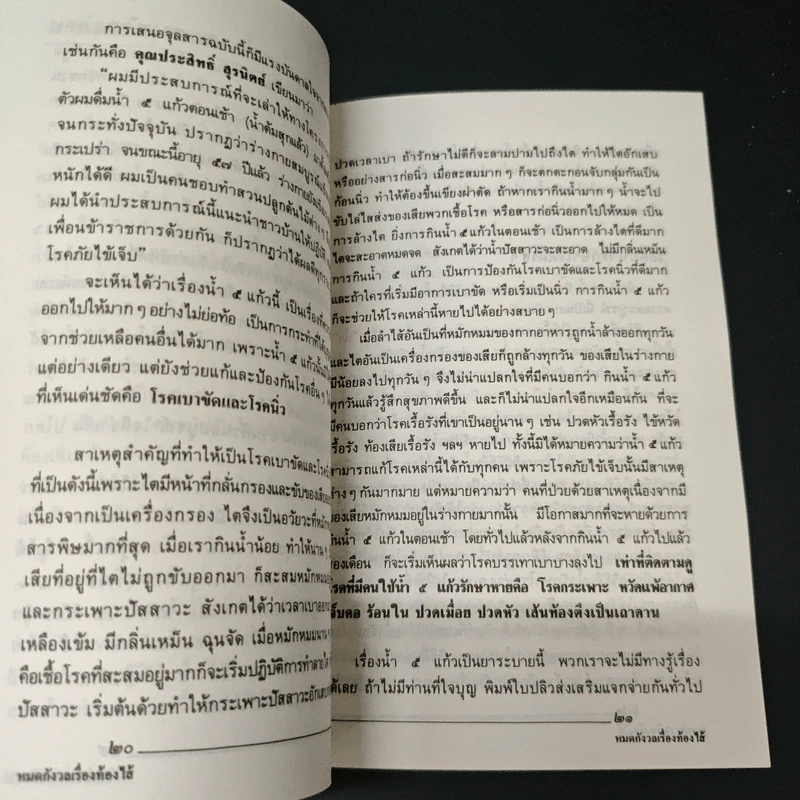 การเสนอจุลสารฉบับนี้ก็มีแรงบันดาลใจ
เช่นกันคือ คุณประสิทธิ์ สุรนิตย์ เขียนมาว่า
“ผมมีประสบการณ์ที่จะเล่าให้ทาง
ตัวผมดื่มน้ำ ๕ แก้วตอนเช้า (น้ำต้มสุกแล้ว)
จนกระทั่งปัจจุบัน ปรากฏว่าร่างกายสมบูรณ์
กระเปร่า จนขณะนี้อายุ ๕๗ ปีแล้ว ร่างกายยัง
หนักได้ดี ผมเป็นคนชอบทำสวนปลูกต้นไม้ต่าง ๆ
ผมได้นำประสบการณ์นี้แนะนำชาวบ้านให้
เพื่อนข้าราชการด้วยกัน ก็ปรากฏว่าได้ผลดี
โรคภัยไข้เจ็บ”
จะเห็นได้ว่าเรื่องน้ำ ๕ แก้วนี้ เป็นเรื่องที่
ออกไปให้มาก ๆ อย่างไม่ย่อท้อ เป็นการกระทำที่ได้
จากช่วยเหลือคนอื่นได้มาก เพราะน้ำ ๕ แก้วนั้น
แต่อย่างเดียว แต่ยังช่วยแก้และป้องกันโรคอื่น ๆ
ที่เห็นเด่นชัดคือ โรคเบาขัดและโรคนิ่ว
สาเหตุสำคัญที่ทำให้เป็นโรคเบาขัดและ
ที่เป็นดังนี้เพราะไตมีหน้าที่กลั่นกรองและขับของ
เนื่องจากเป็นเครื่องกรอง ไตจึงเป็นอวัยวะที่
สารพิษมากที่สุด เมื่อเรากินน้ำน้อย ทำให้นาน ๆ
เสียที่อยู่ที่ไตไม่ถูกขับออกมา ก็สะสมหมักหมม
และกระเพาะปัสสาวะ สังเกตได้ว่าเวลาเบาออก
เหลืองเข้ม มีกลิ่นเหม็น ฉุนจัด เมื่อหมักหมมนาน ๆ
คือเชื้อโรคที่สะสมอยู่มากก็จะเริ่มปฏิบัติการทำลาย
ปัสสาวะ เริ่มต้นด้วยทำให้กระเพาะปัสสาวะอักเสบ
๒๐
หมดกังวลเรื่องท้องไส้
ปวดเวลาเบา ถ้ารักษาไม่ดีก็จะลามปามไปถึงไต ทำให้ไตอักเสบ
หรืออย่างสารก่อนิ่ว เมื่อสะสมมาก ๆ ก็จะตกตะกอนจับกลุ่มกันเป็น
ก้อนนิ่ว ทำให้ต้องขึ้นเขียงผ่าตัด ถ้าหากเรากินน้ำมาก ๆ น้ำจะไป
ขับไล่ไสส่งของเสียพวกเชื้อโรค หรือสารก่อนิ่วออกไปให้หมด เป็น
การล้างไต ยิ่งการกินน้ำ ๕ แก้วในตอนเช้า เป็นการล้างไตที่ดีมาก
ไตจะสะอาดหมดจด สังเกตได้ว่าน้ำปัสสาวะจะสะอาด ไม่มีกลิ่นเหม็น
การกินน้ำ ๕ แก้ว เป็นการป้องกันโรคเบาขัดและโรคนิ่วที่ดีมาก
และถ้าใครที่เริ่มมีอาการเบาขัด หรือเริ่มเป็นนิ่ว การกินน้ำ ๕ แก้ว
ก็จะช่วยให้โรคเหล่านี้หายไปได้อย่างสบาย ๆ
เมื่อลำไส้อันเป็นที่หมักหมมของกากอาหารถูกน้ำล้างออกทุกวัน
และไตอันเป็นเครื่องกรองของเสียก็ถูกล้างทุกวัน ของเสียในร่างกาย
มีน้อยลงไปทุกวัน ๆ จึงไม่น่าแปลกใจที่มีคนบอกว่า กินน้ำ ๕ แก้ว
ทุกวันแล้วรู้สึกสุขภาพดีขึ้น และก็ไม่น่าแปลกใจอีกเหมือนกัน ที่จะ
มีคนบอกว่าโรคเรื้อรังที่เขาเป็นอยู่นาน ๆ เช่น ปวดหัวเรื้อรัง ไข้หวัด
เรื้อรัง ท้องเสียเรื้อรัง ฯลฯ หายไป ทั้งนี้มิได้หมายความว่าน้ำ ๕ แก้ว
สามารถแก้โรคเหล่านี้ได้กับทุกคน เพราะโรคภัยไข้เจ็บนั้นมีสาเหตุ
ต่าง ๆ กันมากมาย แต่หมายความว่า คนที่ป่วยด้วยสาเหตุเนื่องจากมี
ของเสียหมักหมมอยู่ในร่างกายมากนั้น มีโอกาสมากที่จะหายด้วยการ
กินน้ำ ๕ แก้วในตอนเช้า โดยทั่วไปแล้วหลังจากกินน้ำ ๕ แก้วไปแล้ว
องเดือน ก็จะเริ่มเห็นผลว่าโรคบรรเทาเบาบางลงไป เท่าที่ติดตามดู
โรคที่มีคนใช้น้ำ ๕ แก้วรักษาหายคือ โรคกระเพาะ หวัดแพ้อากาศ
เจ็บคอ ร้อนใน ปวดเมื่อย ปวดหัว เส้นท้องตึงเป็นเถาดาน
เรื่องน้ำ ๕ แก้วเป็นยาระบายนี้ พวกเราจะไม่มีทางรู้เรื่อง
ได้เลย ถ้าไม่มีท่านที่ใจบุญ พิมพ์ใบปลิวส่งเสริมแจกจ่ายกันทั่วไป
๒๑
หมดกังวลเรื่องท้องไส้